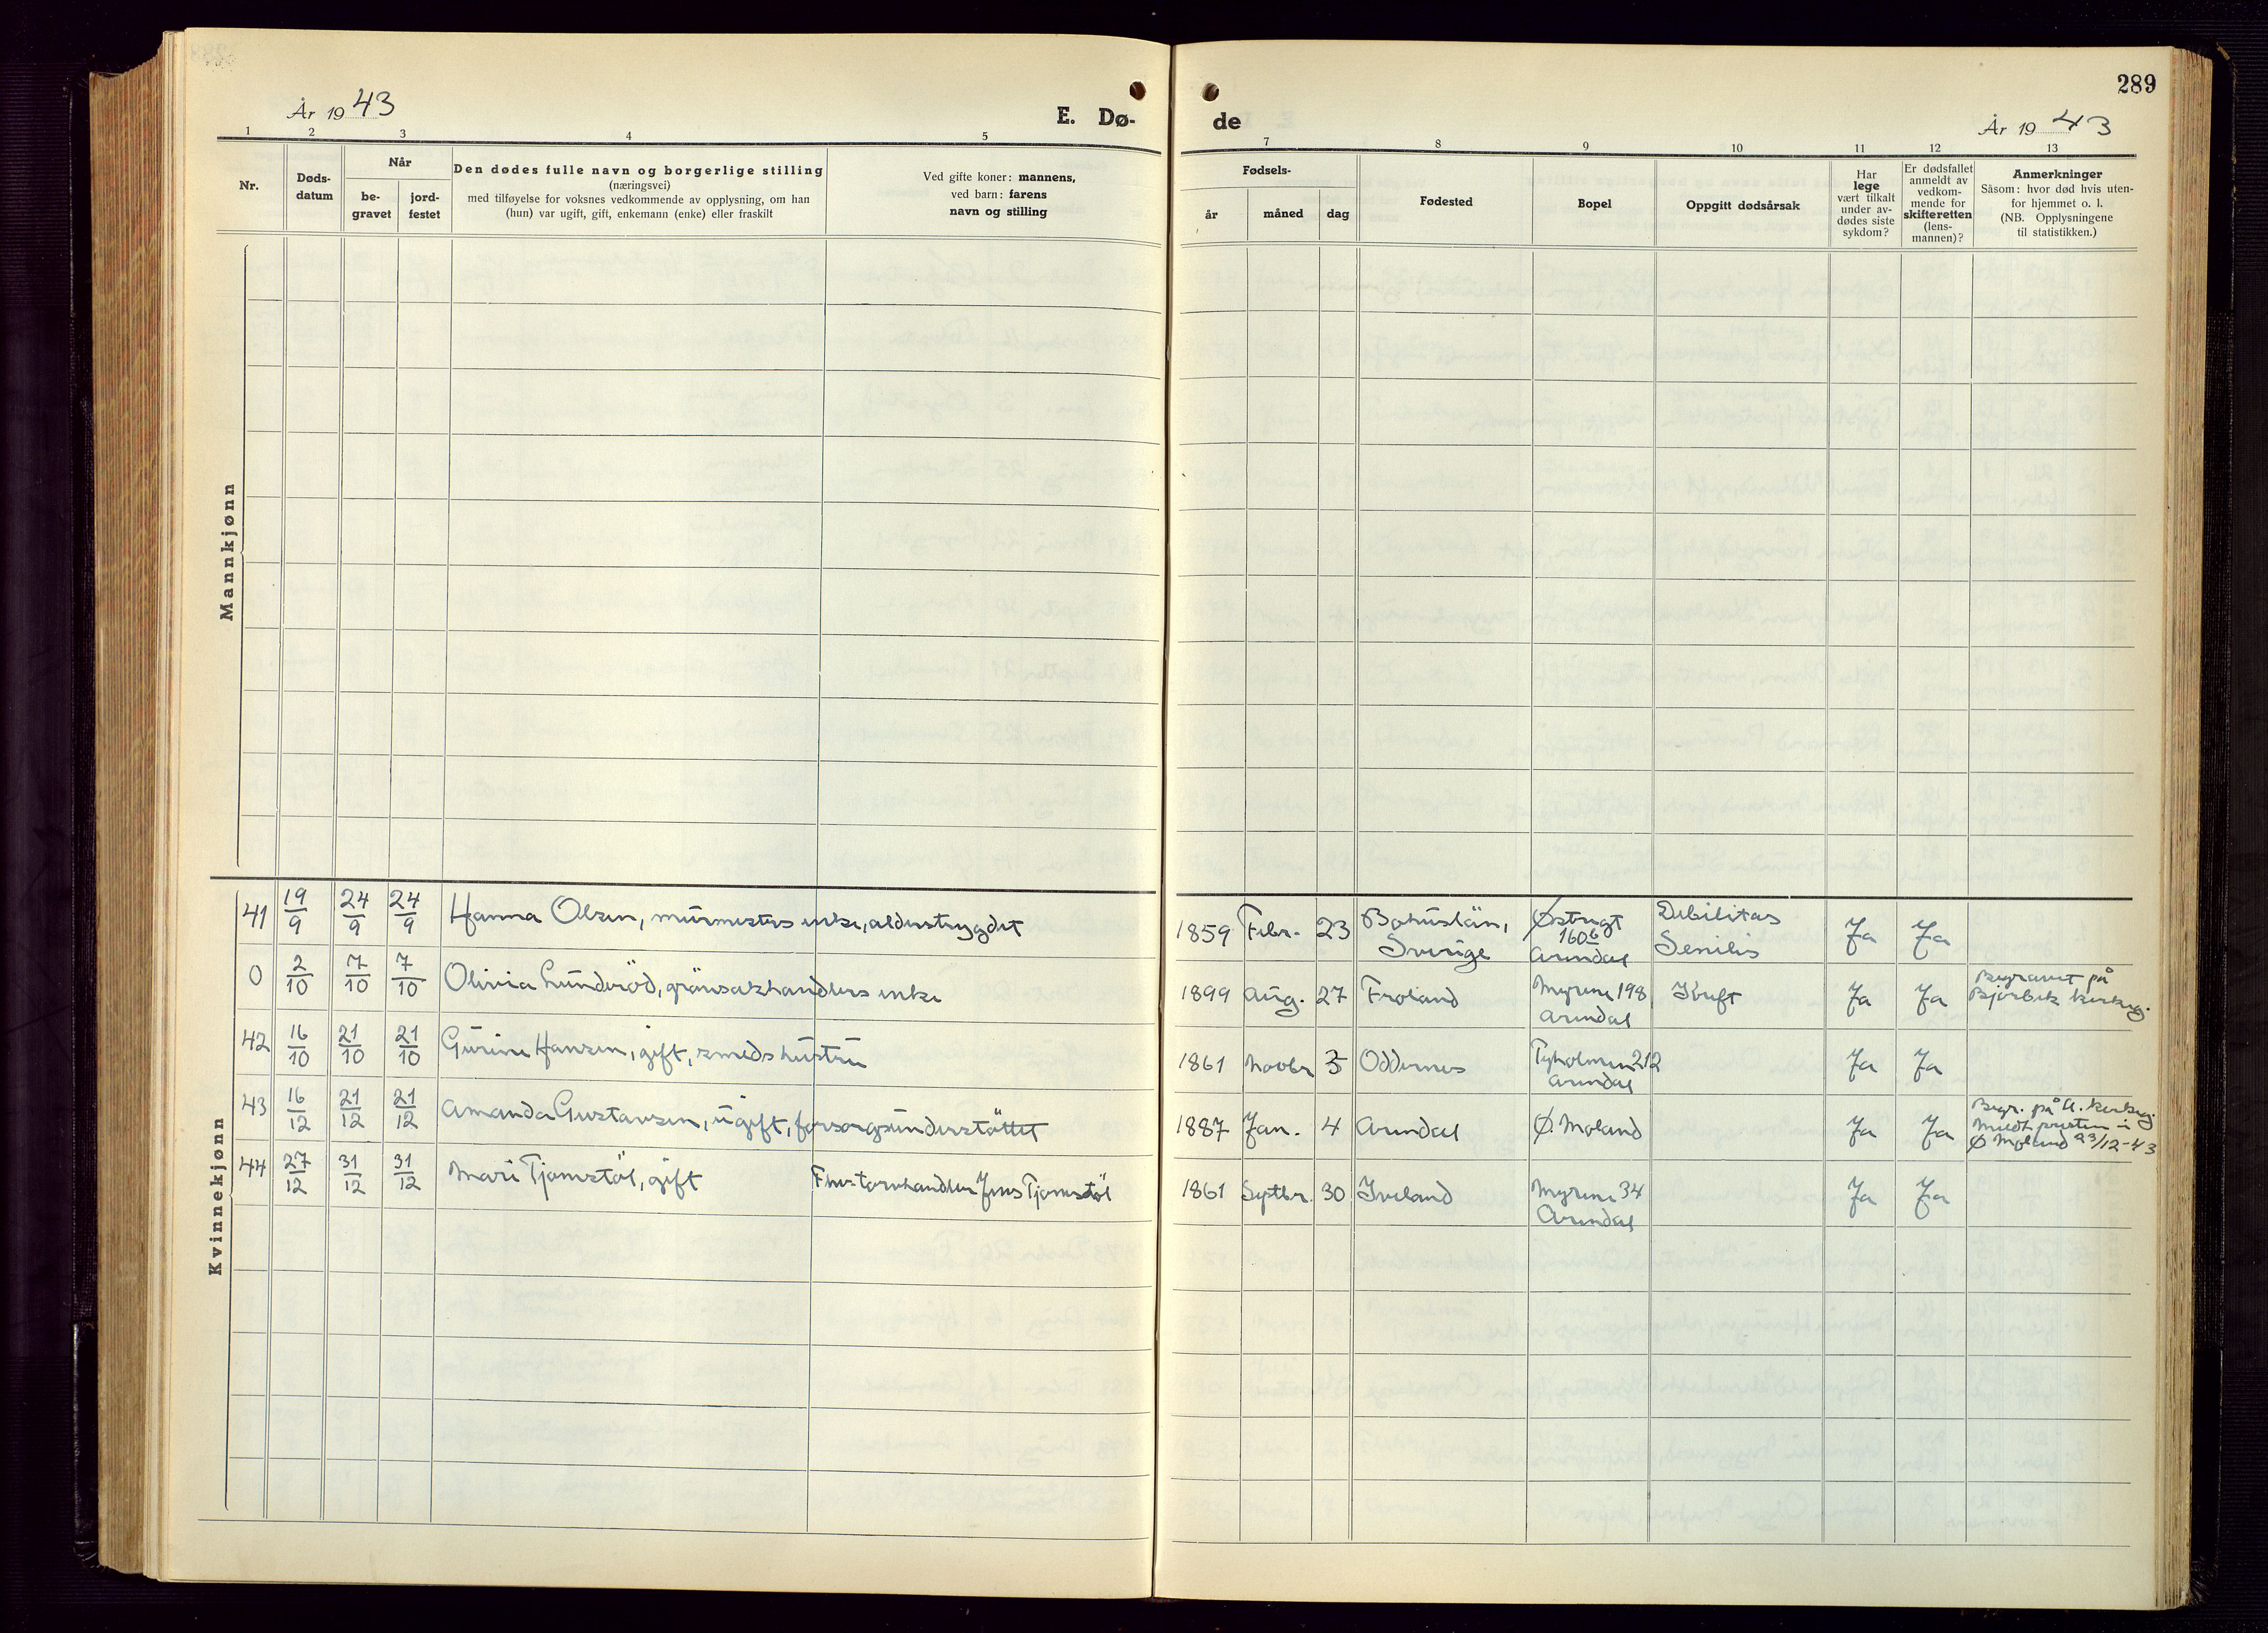 År 1943
E. Dø-
1 2 3 4 5
Nr.
Døds-
datum
Når
be-
gravet
jord-
festet
Den dødes fulle navn og borgerlige stilling
(næringsvei)
med tilføyelse for voksnes vedkommende av opplysning, om han
(hun) var ugift, gift, enkemann (enke) eller fraskilt
Ved gifte koner: mannens,
ved barn: farens
navn og stilling
Mannkjønn
Kvinnekjønn
41 19/9 24/9 24/9 Hanna Olsen, murmesters enke, alderstrygdet
0 2/10 7/10 7/10 Olivia Lunderöd, grönsakhandlers enke
42 16/10 21/10 21/10 Gurine Hansen, gift, smeds hustru
43 16/12 21/12 21/12 Amanda Gustavsen, ugift, forsorgsunderstöttet
44 27/12 31/12 31/12 Mari Tjomstöl, gift Jens Tjomstöl
289
de
År 1943
7 8 9 10 11 12 13
Fødsels-
år måned dag
Fødested
Bopel
Oppgitt dødsårsak
Har
lege
vært tilkalt
under av-
dødes siste
sykdom?
Er dødsfallet
anmeldt av
vedkom-
mende for
skifteretten
(lens-
mannen)?
Anmerkninger
Såsom: hvor død hvis uten-
for hjemmet o. l.
(NB. Opplysningene
til statistikken.)
1859 Febr. 23 Bohuslän,
Sverige
Østregt
160b
Arendal
Debilitas
Senilis
Ja Ja
1899 Aug. 27 Froland
Myrene 198
Arendal
Kreft
Ja Ja
Begravet på
Bjorbek kirkeg.
1861 Novbr 3 Oddernes
Tyholmen 212
Arendal
Ja Ja
1887 Jan. 4 Arendal Ø. Moland Ja Ja
Begr. på A. kirkeg.
Meldt presten i
Ø Moland 23/12-43
1861 Septbr. 30 Iveland
Myrene 34
Arendal
Ja Ja